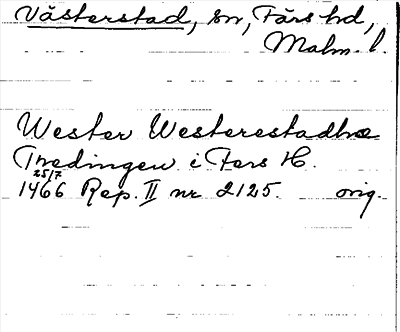 Västerstad, sn, Färs hd,
Malm. l.
Wester Westerestadhæ
Thredingen i Fers H.
25/7
1466 Rep. II nr 2125. orig.